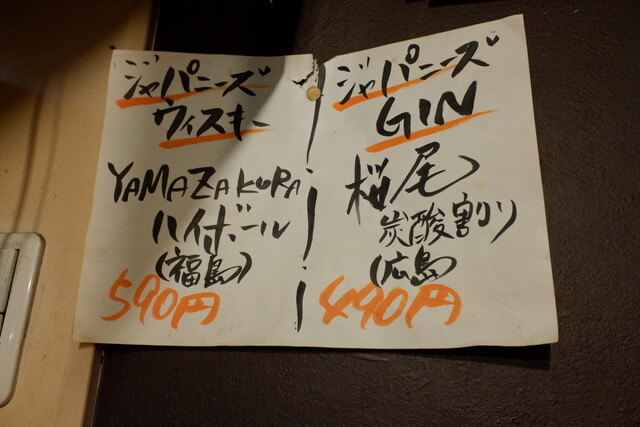 ジャパニーズ
ウィスキー
YAMAZAKURA
ハイボール
(福島)
590円
ジャパニーズ
GIN
桜尾
炭酸割り
(広島)
490円